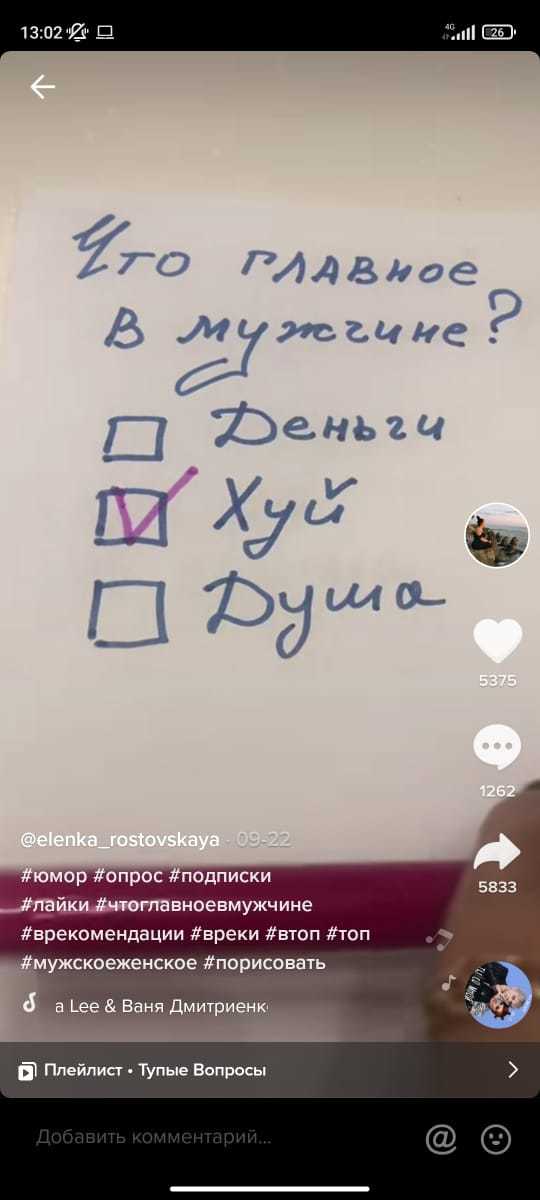 13:02
4G
26
Что главное
в мужчине?
Деньги
Хуй
Душа
5375
1262
5833
@elenka_rostovskaya · 09-22
#юмор #опрос #подписки
#лайки #чтоглавноевмужчине
#врекомендации #вреки #втоп #топ
#мужскоеженское #порисовать
a Lee & Ваня Дмитриенк
Плейлист • Тупые Вопросы
Добавить комментарий...